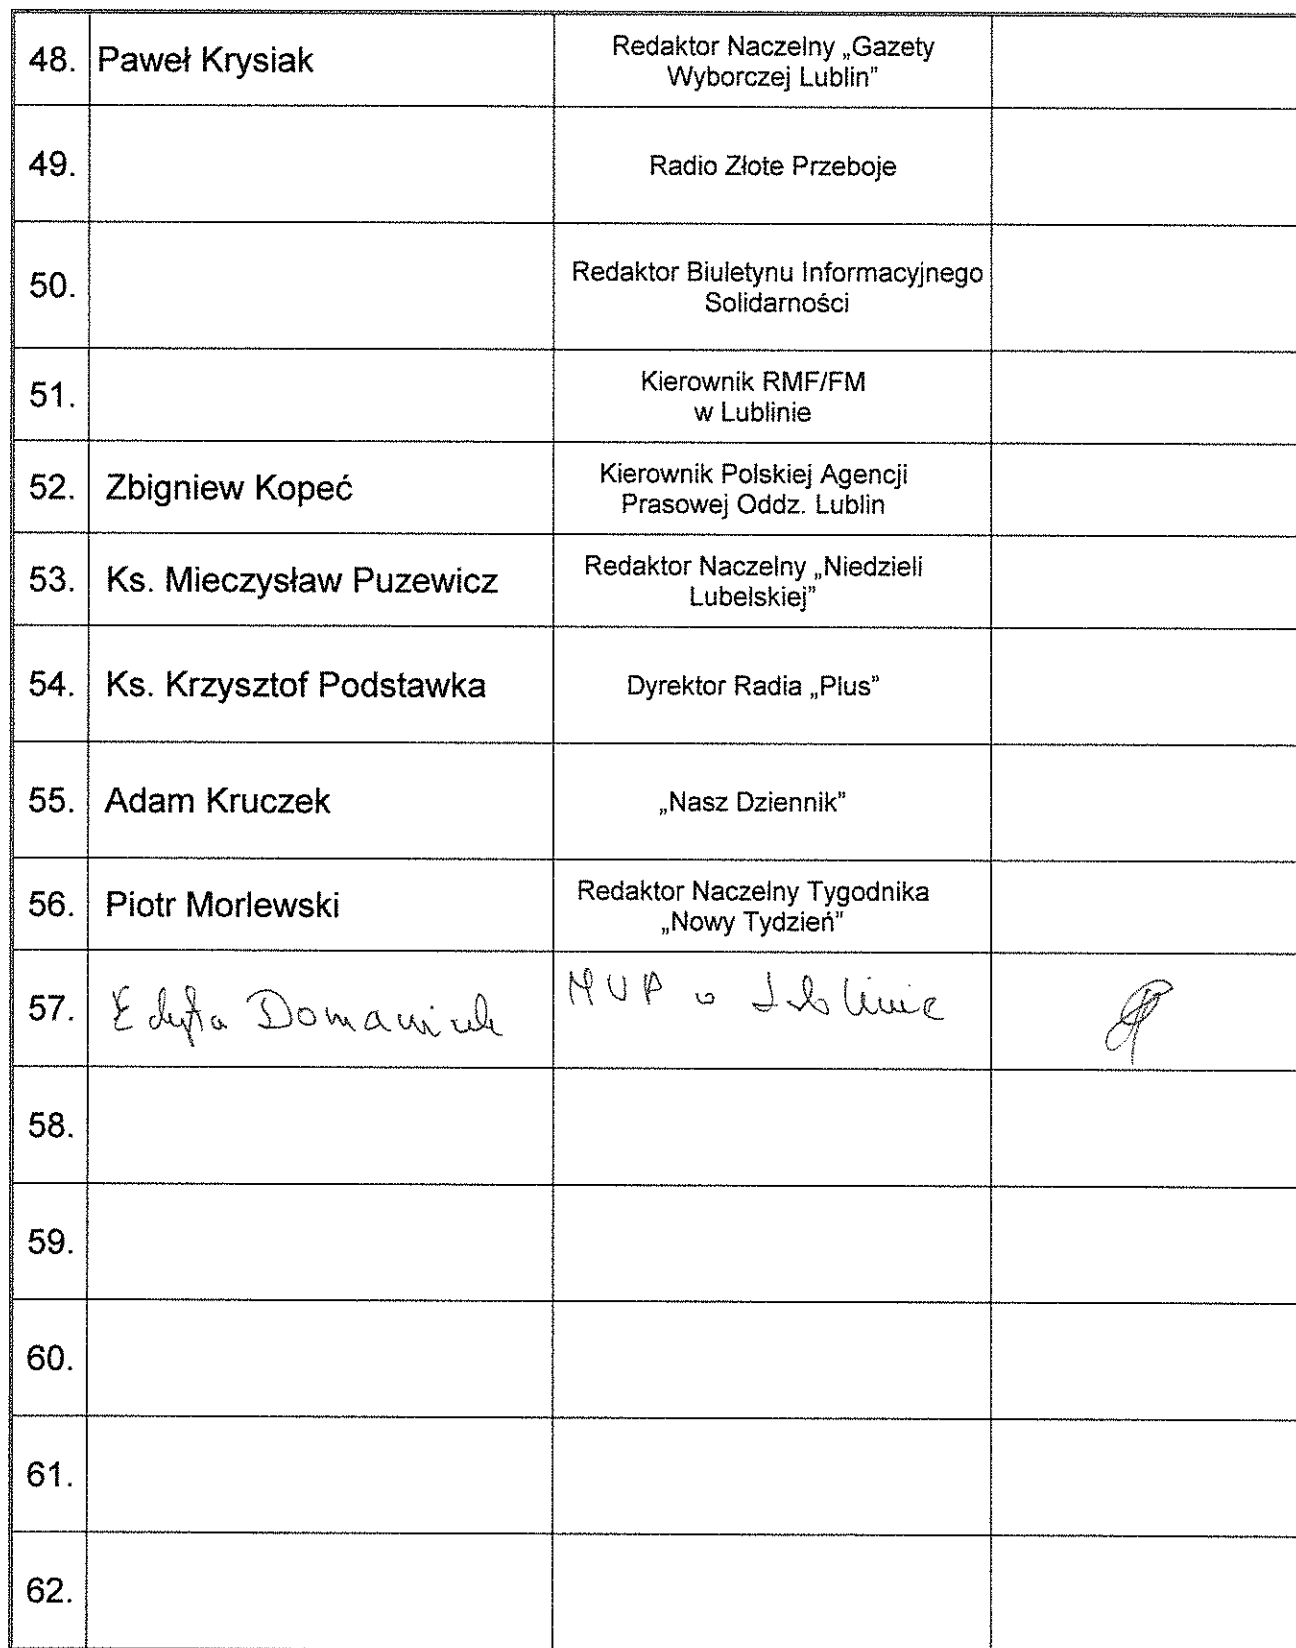 48. Paweł Krysiak
Redaktor Naczelny „Gazety
Wyborczej Lublin”
49.
Radio Złote Przeboje
50.
Redaktor Biuletynu Informacyjnego
Solidarności
51.
Kierownik RMF/FM
w Lublinie
52. Zbigniew Kopeć
Kierownik Polskiej Agencji
Prasowej Oddz. Lublin
53. Ks. Mieczysław Puzewicz
Redaktor Naczelny „Niedzieli
Lubelskiej”
54. Ks. Krzysztof Podstawka
Dyrektor Radia „Plus”
55. Adam Kruczek
„Nasz Dziennik”
56. Piotr Morlewski
Redaktor Naczelny Tygodnika
„Nowy Tydzień”
57. Edyta Domaniuk
MUP w Lublinie
58.
59.
60.
61.
62.